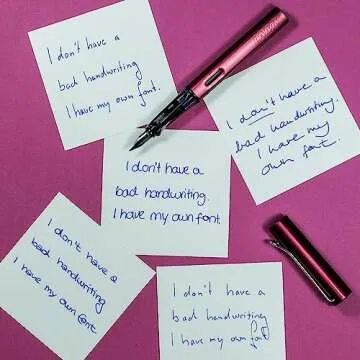 I don't have a
bad handwriting
I have my own font.
I don't have a
bad handwriting.
I have my
own font.
I don't have a
bad handwriting.
I have my own font
I don't have a
bad handwriting
I have my own font
I don't have a
bad handwriting
I have my own font